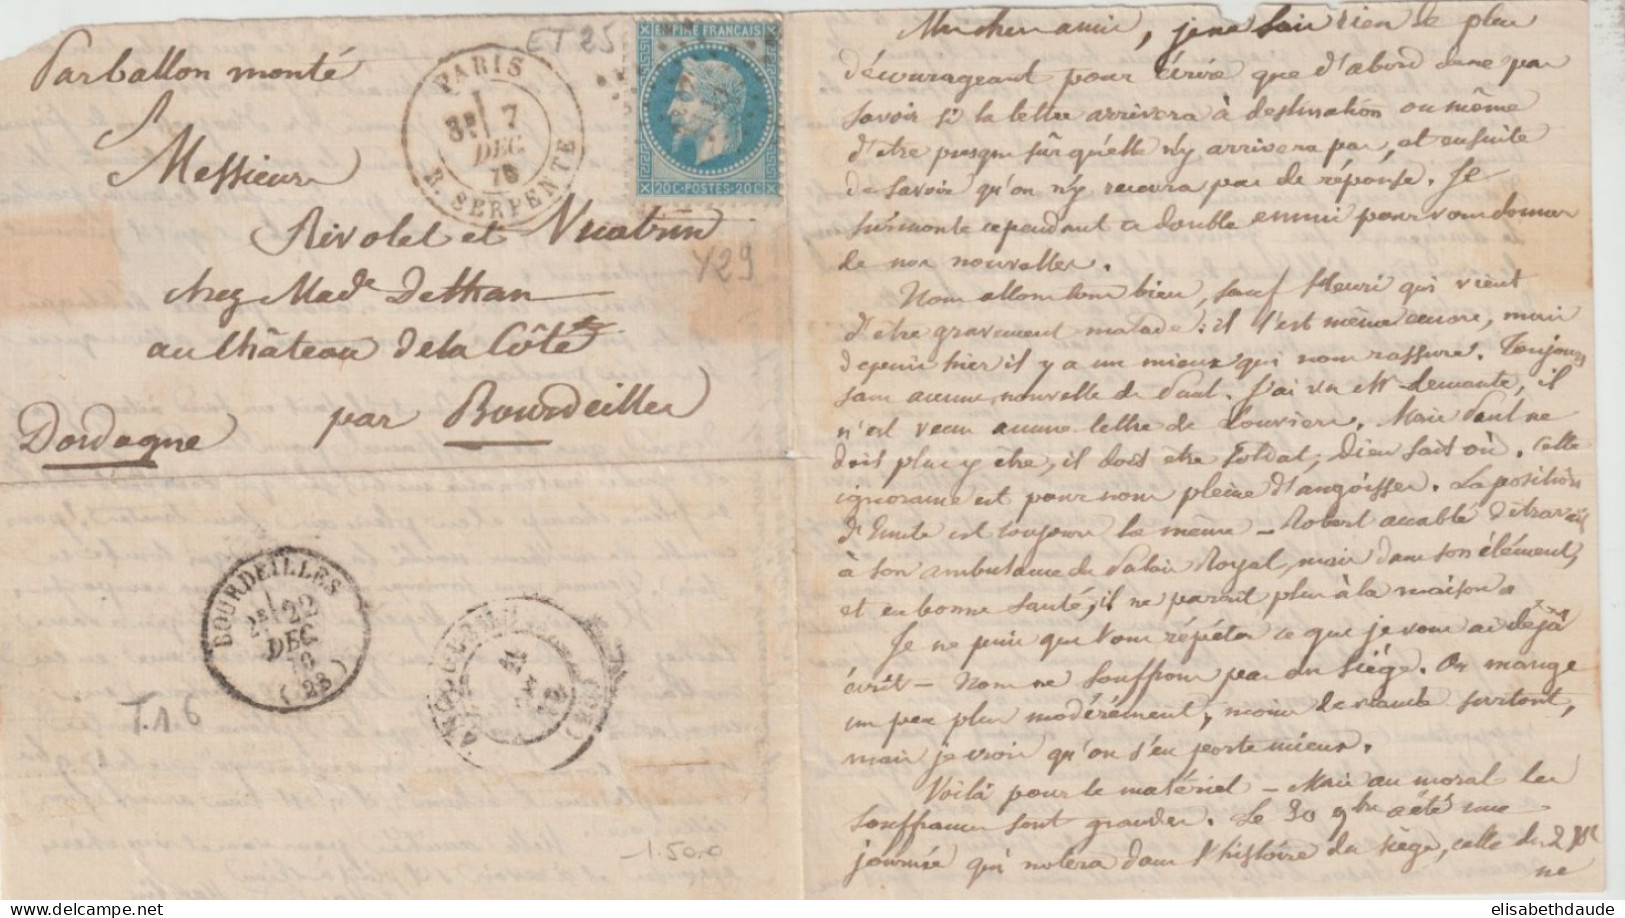 Par ballon monté
Messieurs
Rivolet et
chez Made Dethan
au Château de la Côte
par Bourdeilles
Dordogne
ET 25
PARIS
7
DEC
70
R. SERPENTE
EMPIRE FRANÇAIS
20 C-POSTES-20 C
429
BOURDEILLES
2E 22
DEC
70
(23)
T.16
1.500
Mon cher ami, je ne sais rien de plus
décourageant pour écrire que d'abord de ne pas
savoir si la lettre arrivera à destination ou même
d'être presque sûr qu'elle n'y arrivera pas, et ensuite
de savoir qu'on n'y recevra pas de réponse. Je
surmonte cependant ce double ennui pour vous donner
de nos nouvelles.
Nous allons tous bien, sauf Henri qui vient
d'être gravement malade : il l'est même encore, mais
depuis hier il y a un mieux qui nous rassure. Toujours
sans aucune nouvelle de Paul. J'ai vu Mr demante, il
n'est venu aucune lettre de Louviers. Mais Paul ne
doit plus y être, il doit être soldat, Dieu sait où. Cette
ignorance est pour nous pleine d'angoisses. La position
d' est toujours la même - Robert accablé de travail
à son ambulance du Palais Royal, mais dans son élément,
et en bonne santé, il ne parait plus à la maison.
Je ne puis que vous répéter ce que je vous ai déjà
écrit - Nous ne souffrons pas du siège. On mange
un peu plus modérément, moins de viande surtout,
mais je crois qu'on s'en porte mieux.
Voilà pour le matériel - Mais au moral les
souffrances sont grandes. Le 30 9bre a été une
journée qui notera dans l'histoire du siège, celle du 2 Xbre
ne